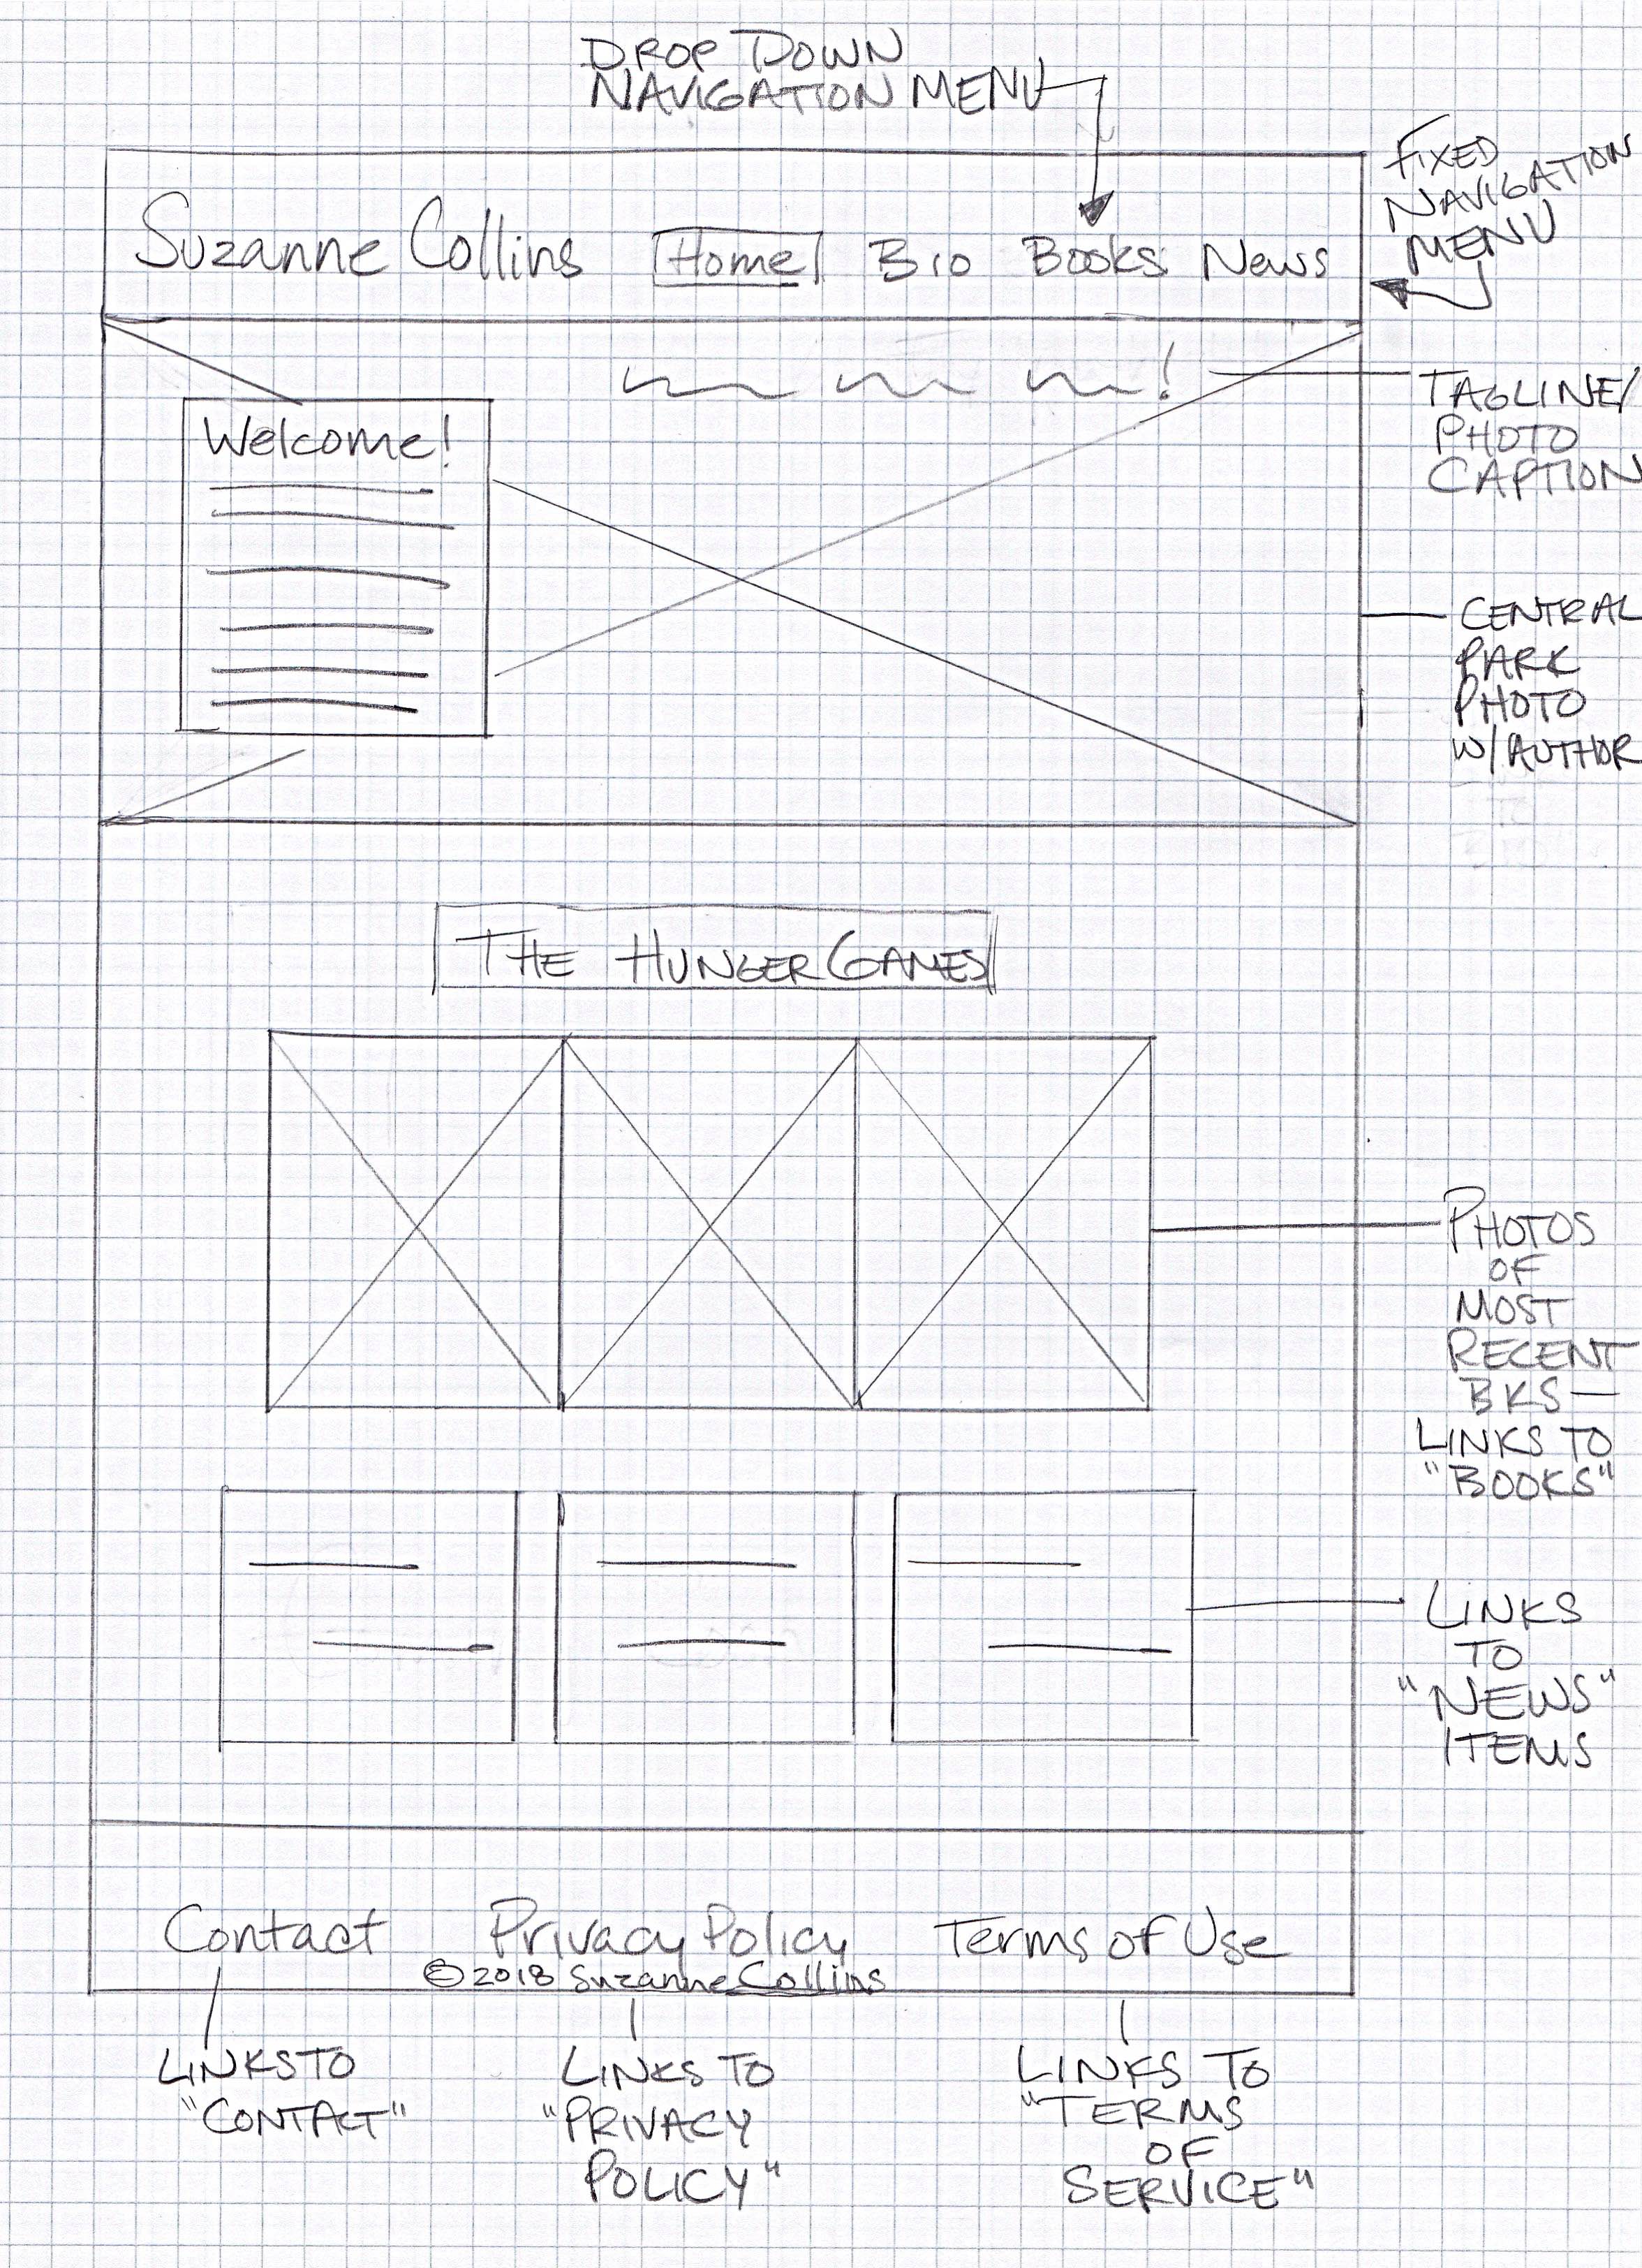 DROP DOWN
NAVIGATION MENU
FIXED
NAVIGATION
MENU
Suzanne Collins Home Bio Books News
TAGLINE/
PHOTO
CAPTION
Welcome!
CENTRAL
PARK
PHOTO
W/ AUTHOR
THE HUNGER GAMES
PHOTOS
OF
MOST
RECENT
BKS—
LINKS TO
"BOOKS"
LINKS
TO
"NEWS"
ITEMS
Contact Privacy Policy Terms of Use
©2018 Suzanne Collins
LINKS TO
"CONTACT"
LINKS TO
"PRIVACY
POLICY"
LINKS TO
"TERMS
OF
SERVICE"